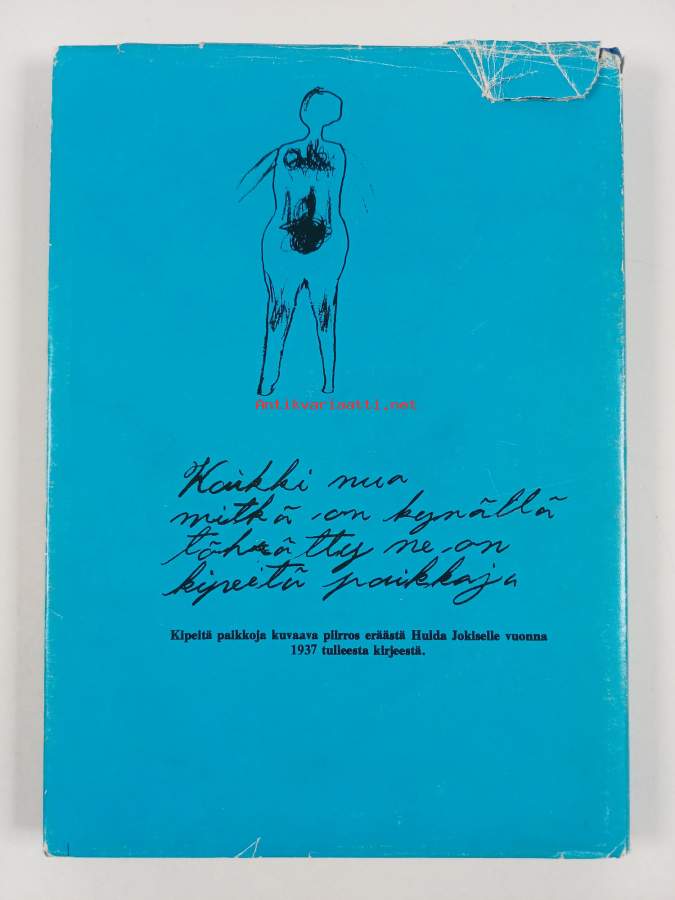 Antikvariaatti.net
Kaikki nua
mitkä on kynällä
töhrätty ne on
kipeitä paikkoja
Kipeitä paikkoja kuvaava piirros eräästä Hulda Jokiselle vuonna
1937 tulleesta kirjeestä.